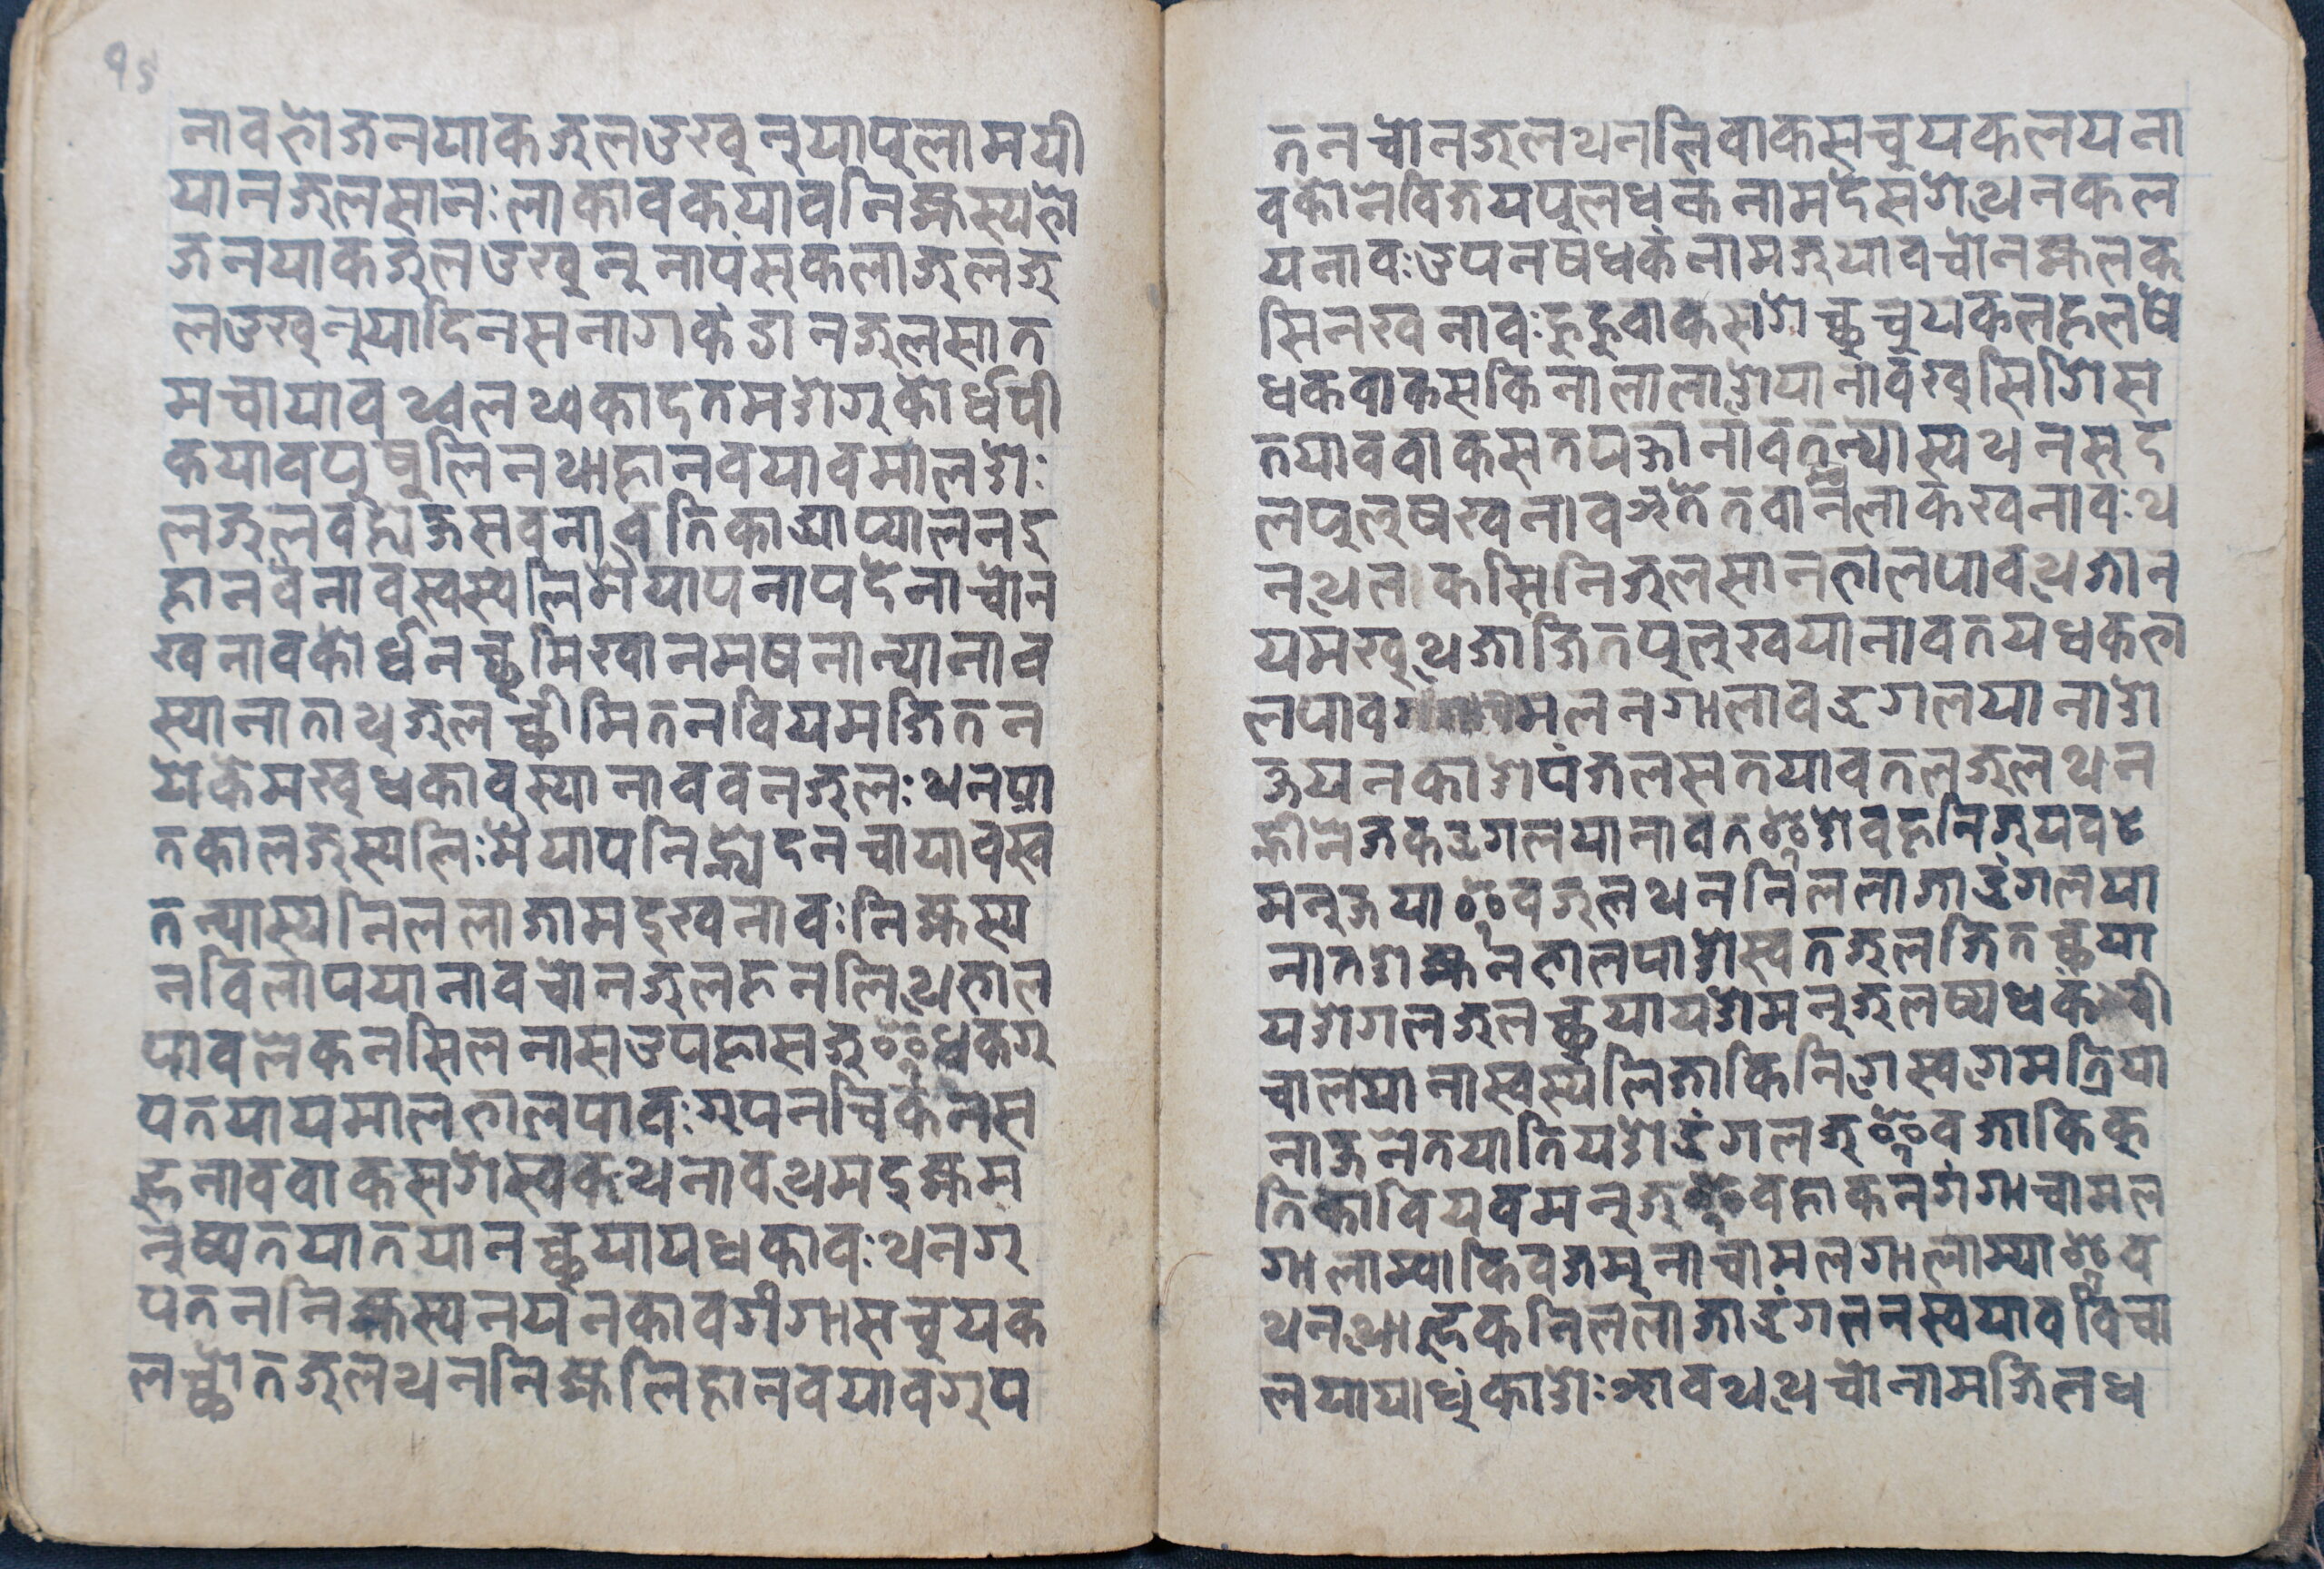 १५
नावभोजनयाकजुलउखुनुयापुलामयी
यानजुलसानःलाकावकयावनिह्मस्यभो
जनयाकजुलउखुनुनापंसकलाजुलजु
लउखुनुयादिनसनागकंङानजुलसात
मचायावथ्वलथ्वकादतमङोगुकोर्धपी
कयावपुषुलिनथाहानवयावमालङोः
लजुलवह्येजसवनावतिकाद्यापयालनदु
हानवनावस्वस्यलिमैयापनापदेनाचोन
खनावकोर्धनच्छमिखानमषनान्यानाव
स्यानाताथुजुलच्छीमितनवियमजितन
येकेमखुधकावस्यानाववनजुलःथनपा
तकालजुस्यलिःमैयापनिह्येदनचायावस्व
तन्यास्यनिललाजामदुखनावःनिह्मस्य
नविलापयानावचोनजुलहनलिथेहाल
पावलेकनसिलनासउपहासजुधकगु
पतयायमालहालपावःगुपनचिकनस
हुनाववाकसगेस्वकथनावथेमदुह्मम
नुष्यतयातयानच्छयायधकावःथनगु
पतननिह्मस्यनयनकावगंगासचुयक
लच्छोतजुलथननिह्मलिहानवयावगुप
तनचोनजुलथनलिवाकसचुयकलयना
वकोनेविजयपुलधकनामदेसगेथेनकल
यनावःउपनषधकंनामजुयावचोनह्मलक
सिनखनावःहुहुवाकसगेच्छचुयकलहलषे
धकवाकसकिनालालाङोयानावखुसिगिस
तयाववाकसतपज्ञानावतन्यास्यथनसुद
लपुलुषखनावजुतेतवानलाकखनावःथ
नथेलकसिनिजुलसानहालपावथेजान
यमखुथेजाजितपुलुखयानावतयधकहा
लपाव मलनगालावइगलयानाङो
जयनकाङेपंजलसतयावतलजुलथन
ह्मीनेजकइगलयानावत ङेवहनिजुयवटे
मनुजया वजुलथननिललाजाइंगलया
नातङेह्मनहालपाङोस्वतजुलजितच्छया
यङोगलजुलच्छयायङेमनुजुलष्यधकं वी
चालयानास्वस्यलिजाकिनिगेस्वगेमत्रिया
नाजनेतयातियङेइंगलजु वजाकिकु
तिकावियवमनुजु वहाकनगंगाचामल
गालाम्वाकिवजमुनाचामलगालाम्या व
थनथाहुकनिललाजाइंगलनस्वयावविचा
लयायाधुंकाङेःझावथथेचोनामजिलध